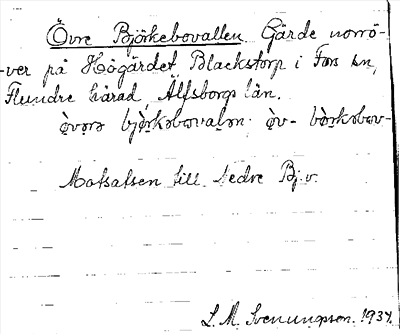 Övre Björkebovallen Gärde norrö-
-ver på Högärdet Blackstorp i Fors sn,
Flundre härad, Älfsborgs län.
Motsatsen till Nedre Bj.v.
L. M. Svenungsson. 1934.